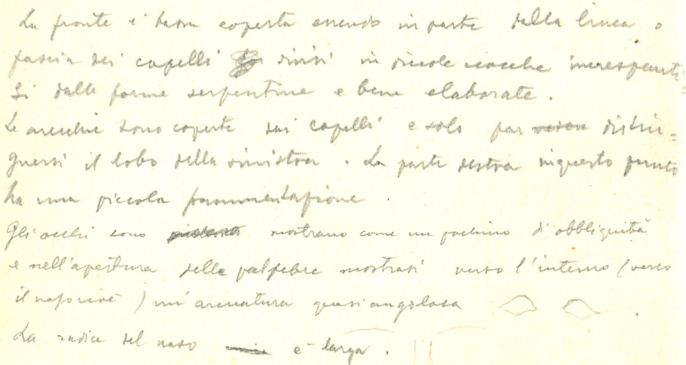 La fronte è bassa coperta essendo in parte dalla linea o
fascia dei capelli divisi in piccole ciocche increspanti=
si dalle forme serpentine e bene elaborate.
Le orecchie sono coperte dai capelli e solo par distin=
guersi il lobo della sinistra. La parte destra in questo punto
ha una piccola frammentazione
Gli occhi sono mostrano come un pochino d'obbliquità
e nell'apertura delle palpebre mostrasi verso l'interno (verso
il naso cioè) un'arcuatura quasi angolosa
La radice del naso è larga.